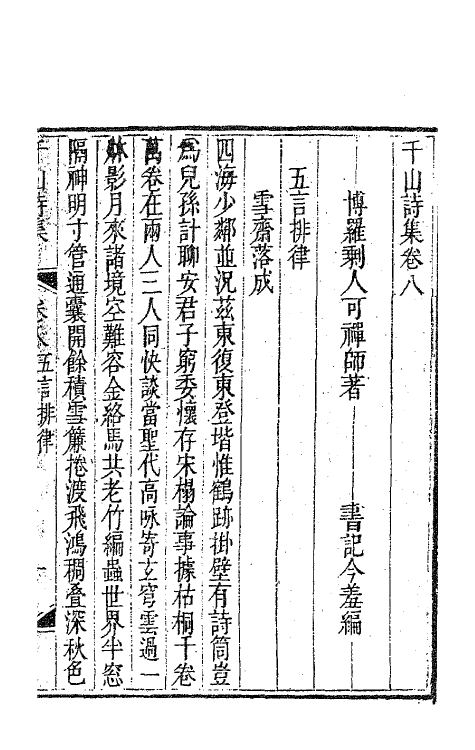 千山詩集卷八
博羅剩人可禪師著　書記今羞編
五言排律
雪齋落成
四海少鄰並況茲東復東登堦惟鶴跡掛壁有詩筒豈
爲兒孫計聊安君子窮委懷存宋榻論事據枯桐千卷
萬卷在兩人三人同快談當聖代高咏寄玄穹雲過一
林影月來諸境空難容金絡馬共老竹編蟲世界半窓
隔神明寸管通囊開餘積雪簾捲渡飛鴻稠叠深秋色
千山詩集　卷八　五言排律　一